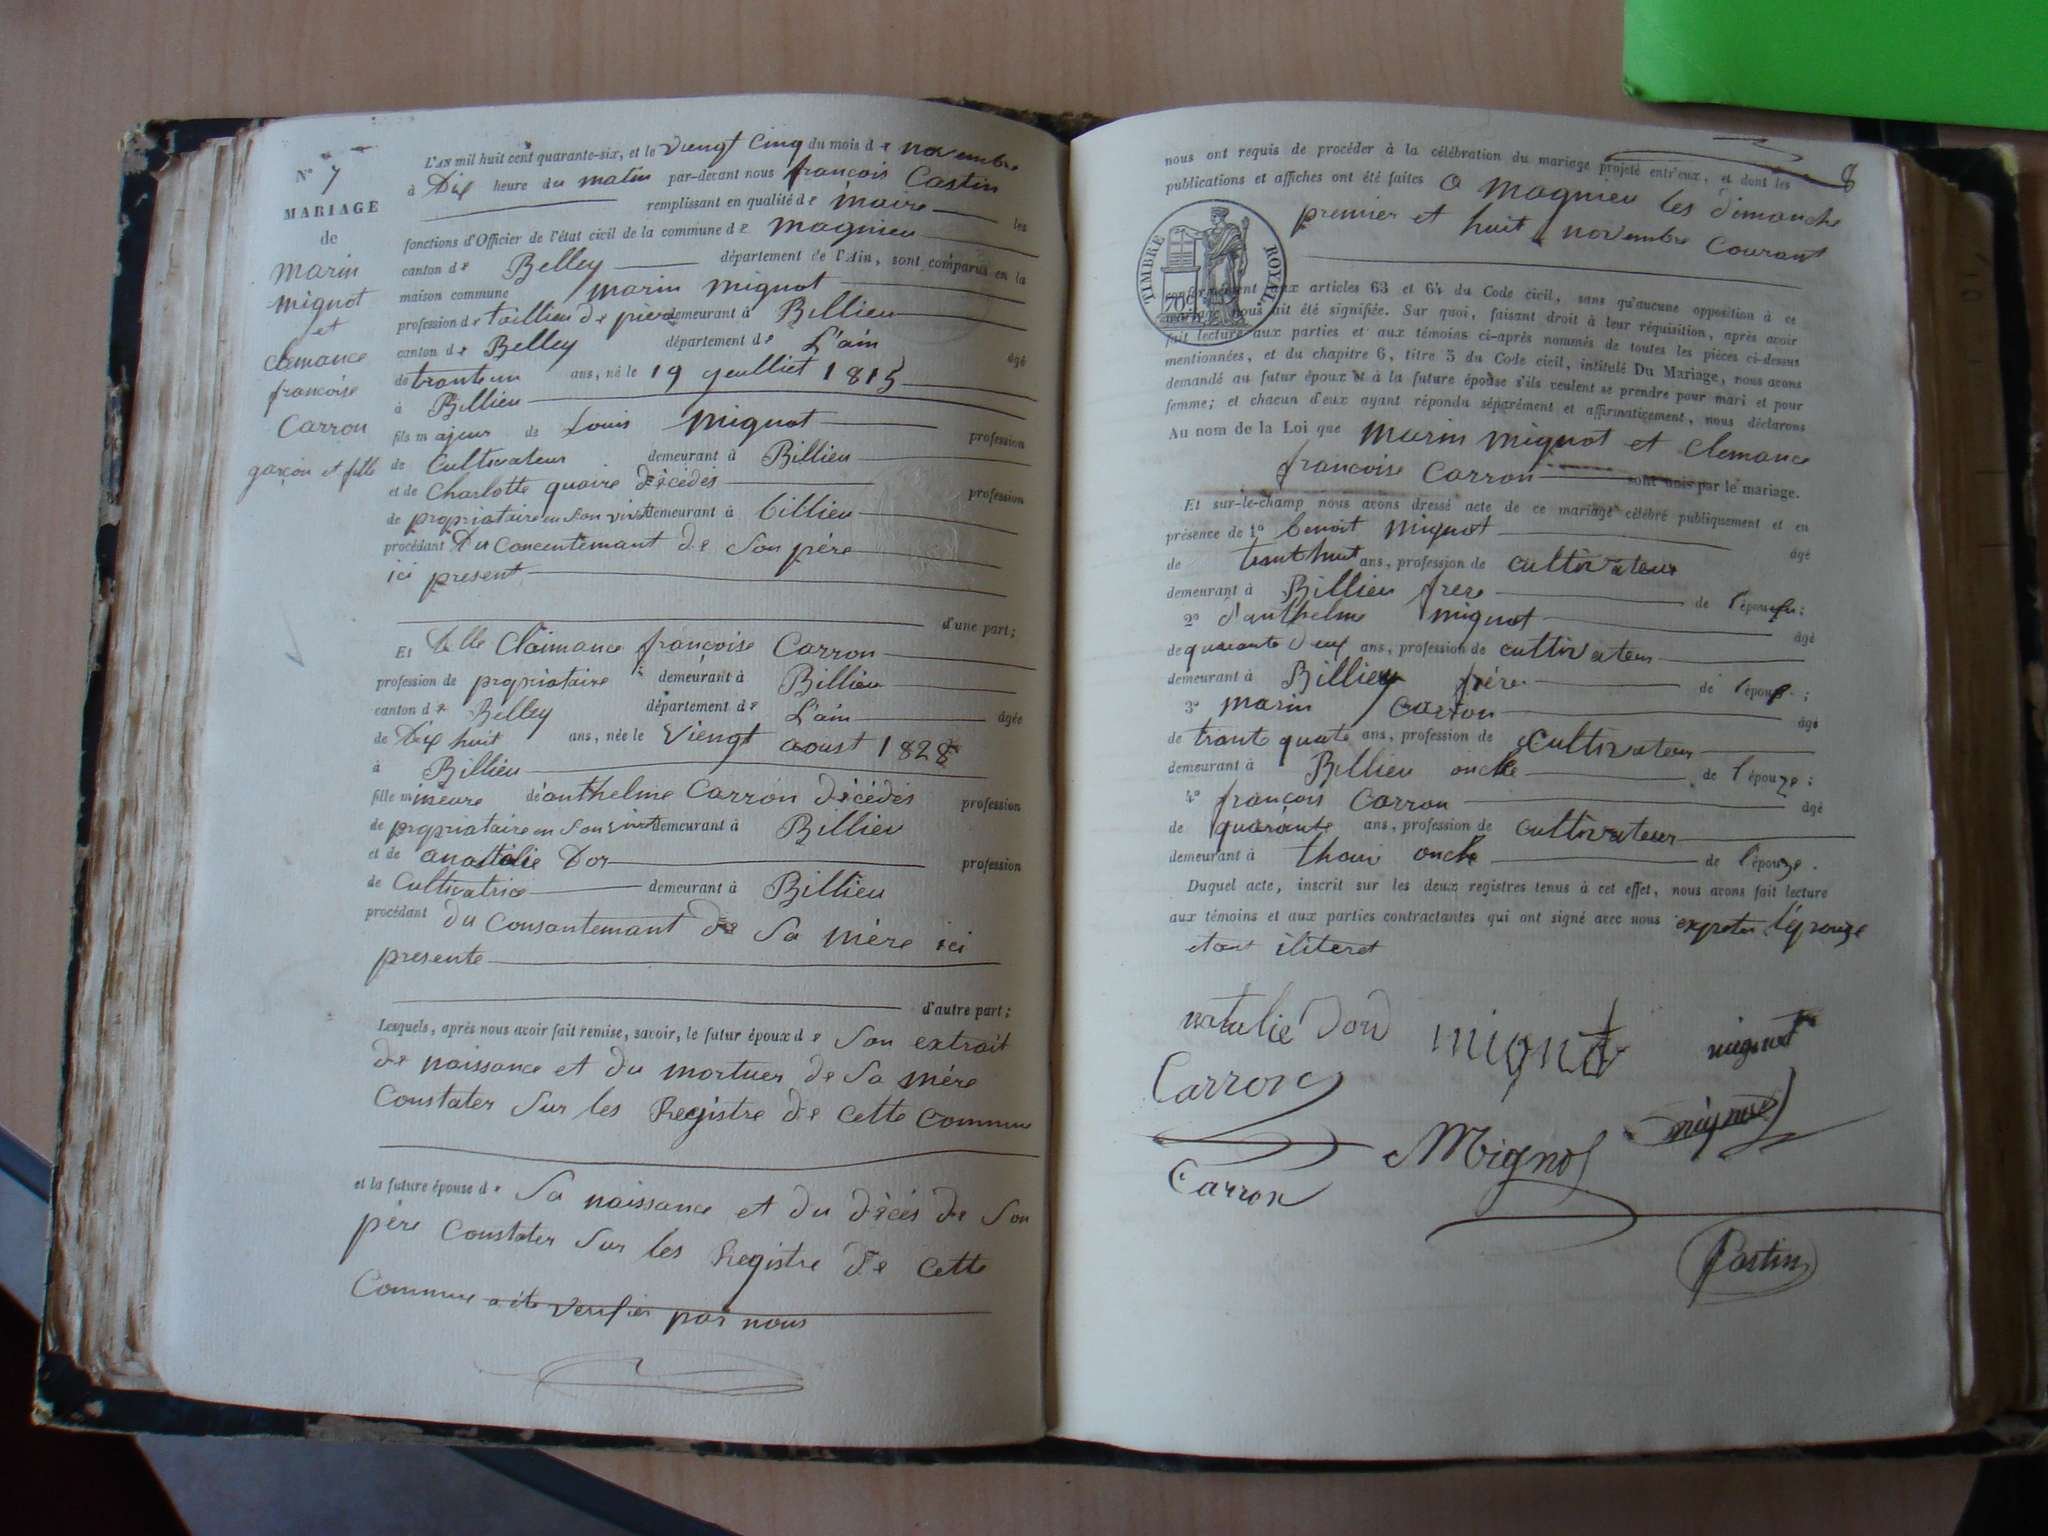 N° 7
MARIAGE
de
marin
mignot
et
clemance
francoise
Carron
garçon et fille
L'AN mil huit cent quarante-six, et le viengt Cinq du mois de novembre
à Dix heure du matin par-devant nous françois Castin
remplissant en qualité de maire les
fonctions d'Officier de l'état civil de la commune de magnieu
canton de Belley département de l'Ain, sont comparus en la
maison commune marin mignot
profession de taillieu de piere demeurant à Billieu
canton de Belley département de L'ain âgé
de tranteun ans, né le 19 yeulliet 1815
à Billieu
fils majeur de Louis mignot profession
de Cultivateur demeurant à Billieu
et de Charlotte quaire décédés profession
de propriataire en son vivt demeurant à billieu
procédant Du Concentemant de Son père
ici present
d'une part;
Et Delle Claimance françoise Carron
profession de propriataire demeurant à Billieu
canton de Belley département de L'ain âgée
de Dix huit ans, née le Viengt aoust 1828
à Billieu
fille mineure de anthelme Carron décédés profession
de propriataire en son vivt demeurant à Billieu
et de anattalie Dor profession
de Cultivatrice demeurant à Billieu
procédant du Consantemant de Sa mère ici
presente
d'autre part;
Lesquels, après nous avoir fait remise, savoir, le futur époux de Son extrait
de naissance et du mortuer de Sa mère
Constater Sur les Registre de Cette Commune
et la future épouse de Sa naissance et du décés de Son
père Constater Sur les Registre de Cette
Commune a été verifier par nous
8
nous ont requis de procéder à la célébration du mariage projeté entr'eux, et dont les
publications et affiches ont été faites a magnieu les dimanche
premier et huit novembre Courant
TIMBRE ROYAL
70c
conformément aux articles 63 et 64 du Code civil, sans qu'aucune opposition à ce
mariage nous ait été signifiée. Sur quoi, faisant droit à leur réquisition, après avoir
fait lecture aux parties et aux témoins ci-après nommés de toutes les pièces ci-dessus
mentionnées, et du chapitre 6, titre 5 du Code civil, intitulé Du Mariage, nous avons
demandé au futur époux et à la future épouse s'ils veulent se prendre pour mari et pour
femme; et chacun d'eux ayant répondu séparément et affirmativement, nous déclarons
Au nom de la Loi que marin mignot et Clemance
françoise Carron sont unis par le mariage.
Et sur-le-champ nous avons dressé acte de ce mariage célébré publiquement et en
présence de 1° benoit mignot âgé
de trant huit ans, profession de cultivateur
demeurant à Billieu frere de l'époux;
2° d'anthelme mignot âgé
de quarante deux ans, profession de cultivateur
demeurant à Billieu frère de l'époux;
3° marin Carron âgé
de trant quate ans, profession de cultivateur
demeurant à Billieu oncle de l'épouze;
4° françois Carron âgé
de quarante ans, profession de cultivateur
demeurant à thoui oncle de l'épouze.
Duquel acte, inscrit sur les deux registres tenus à cet effet, nous avons fait lecture
aux témoins et aux parties contractantes qui ont signé avec nous expeter l'épouze
etant iliteret
natalie Dord mignot mignot
Carron
Mignot mignot
Carron
Castin